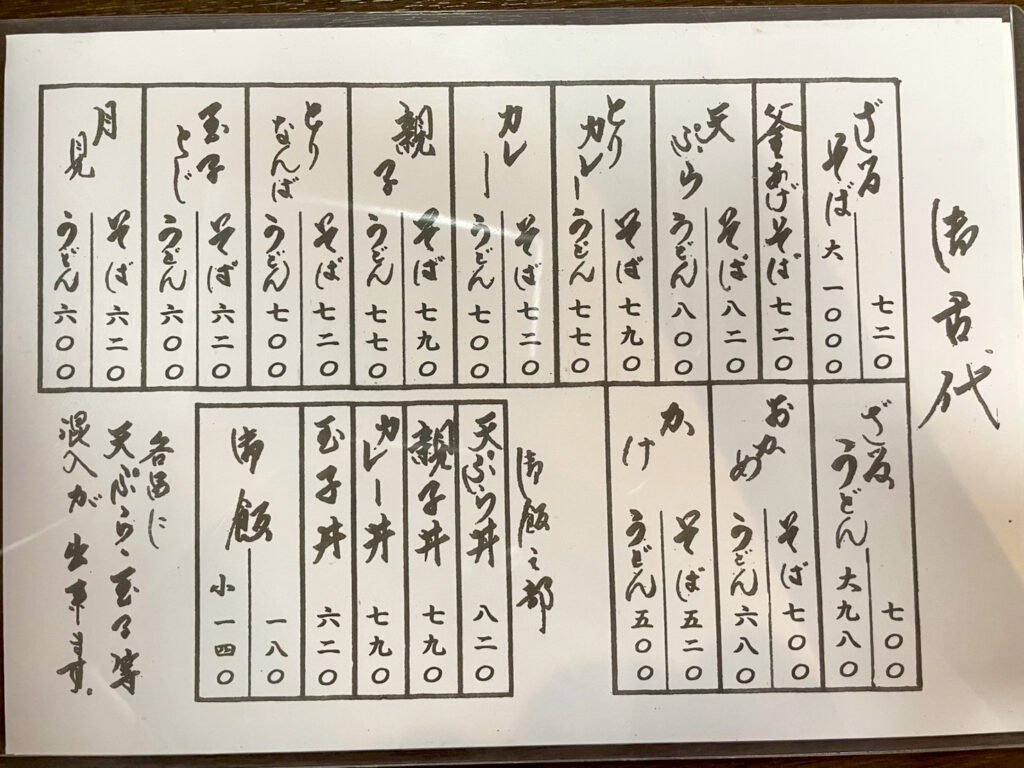 ざるそば 七二〇
大 一〇〇〇
釜あげそば 七二〇
天ぷら
そば 八二〇
うどん 八〇〇
とりカレー
そば 七九〇
うどん 七七〇
カレー
そば 七二〇
うどん 七〇〇
親子
そば 七九〇
うどん 七七〇
とりなんば
そば 七二〇
うどん 七〇〇
玉子とじ
そば 六二〇
うどん 六〇〇
月見
そば 六二〇
うどん 六〇〇
ざるうどん 七〇〇
大 九八〇
おかめ
そば 七〇〇
うどん 六八〇
かけ
そば 五二〇
うどん 五〇〇
御飯之部
天ぷら丼 八二〇
親子丼 七九〇
カレー丼 七九〇
玉子丼 六二〇
御飯 一八〇
小 一四〇
各品に
天ぷら、玉子等
混入が出来ます。